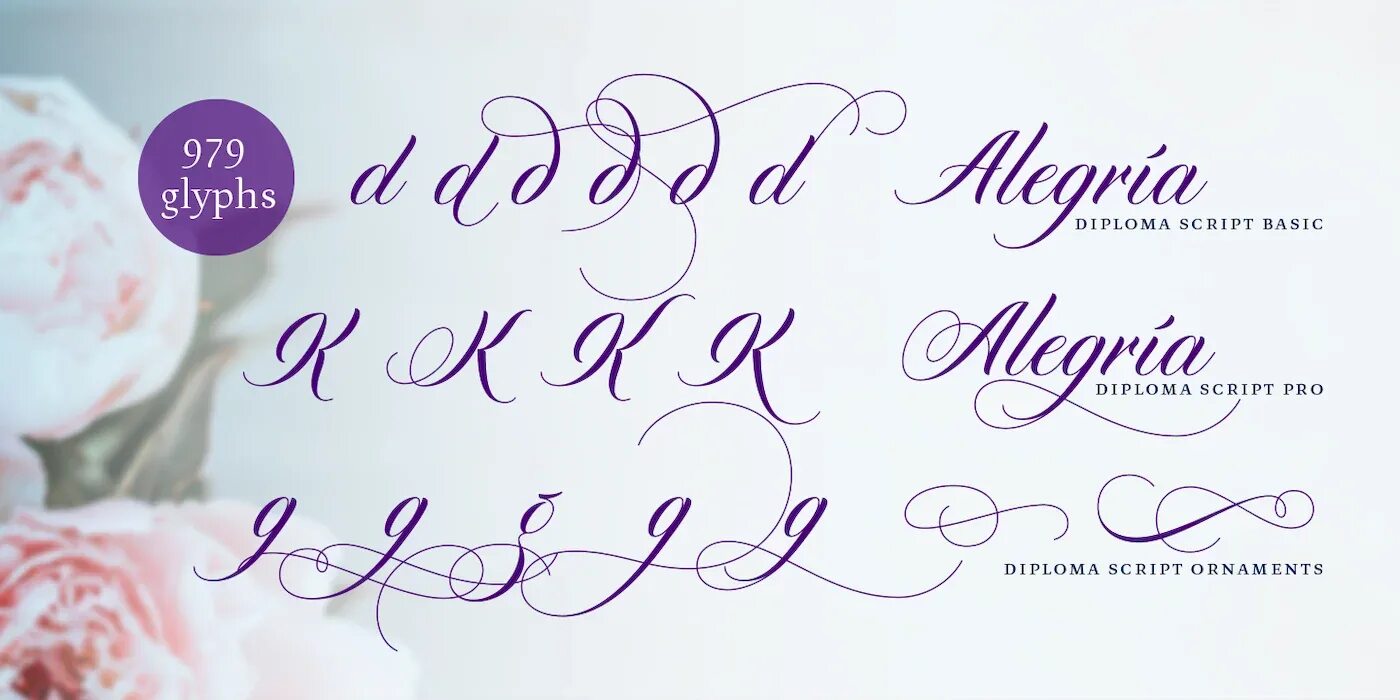 979
glyphs
d d d d d d
Alegría
DIPLOMA SCRIPT BASIC
K K K K
Alegría
DIPLOMA SCRIPT PRO
g g g g g
DIPLOMA SCRIPT ORNAMENTS